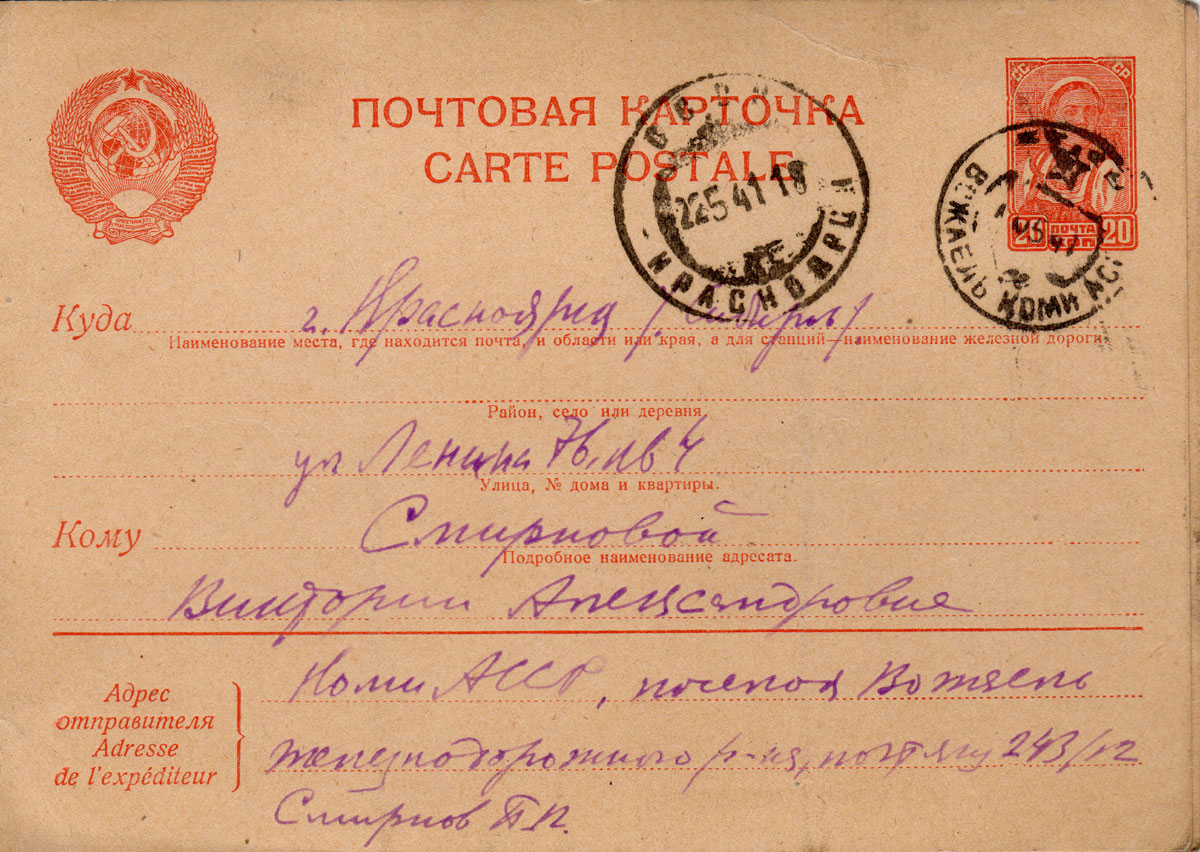 ПОЧТОВАЯ КАРТОЧКА
CARTE POSTALE
СС СР
20 ПОЧТА КОП. 20
СССР
22 5 41 18
КРАСНОЯРСК
ВОЖАЕЛЬ КОМИ АС
Куда г. Красноярск (Сибирь)
Наименование места, где находится почта, и области или края, а для станций—наименование железной дороги.
Район, село или деревня.
ул Ленина 76, кв 4
Улица, № дома и квартиры.
Кому Смирновой
Подробное наименование адресата.
Виктории Александровне
Адрес отправителя
Adresse de l'expéditeur
Коми АССР, поселок Вожаель
Железнодорожного р-на, почт ящ 243/12
Смирнов